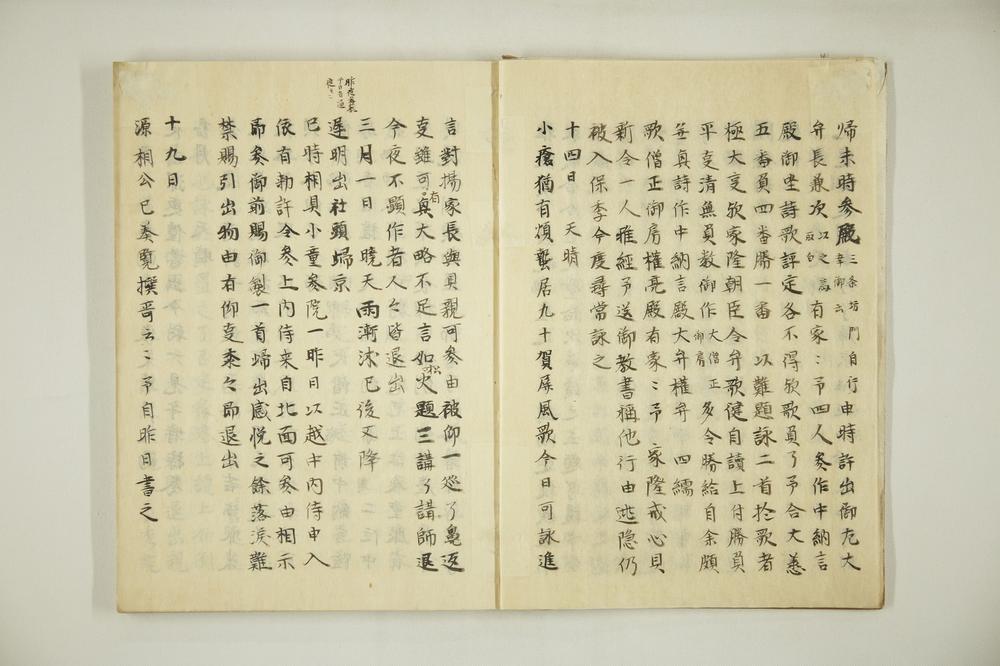 帰未時参殿三条坊門自行幸御云々申時許出御左大
弁長兼次以之為有家ゝ予四人参作中納言
殿御坐詩歌評定各不得歌員了予合大善
五番負四番勝一番以難題詠二首於歌者
極大変歟家隆朝臣令弁歌健自讀上付勝負
平変清無負数御作大僧正御房多令勝給自余頗
無真詩作中納言殿大弁権弁四繻
歌僧正御房権亮殿有家ゝ予家隆戒心具
新令一人雅経予送御教書稱他行由逃隠仍
被入保季今度尋常詠之
十四日天晴
小瘡猶有煩蟄居九十賀屏風歌今日可詠進
昨夜
言對揚家長與具親可参由被仰一巡了亀返
変雖可有真大略不足言如火題三講了講師退
今夜不顕作者人々皆退出
三月一日暁天雨漸沐已後又降
遅明出社頭歸京
巳時相具小童参院一昨日以越中内侍申入
依有勅許令参上内侍来自北面可参由相示
即参御前賜御製一首歸出感悦之餘落涙難
禁賜引出物由有仰変忝々即退出
十九日
源相公已奏覧撰哥云ゝ予自昨日書之